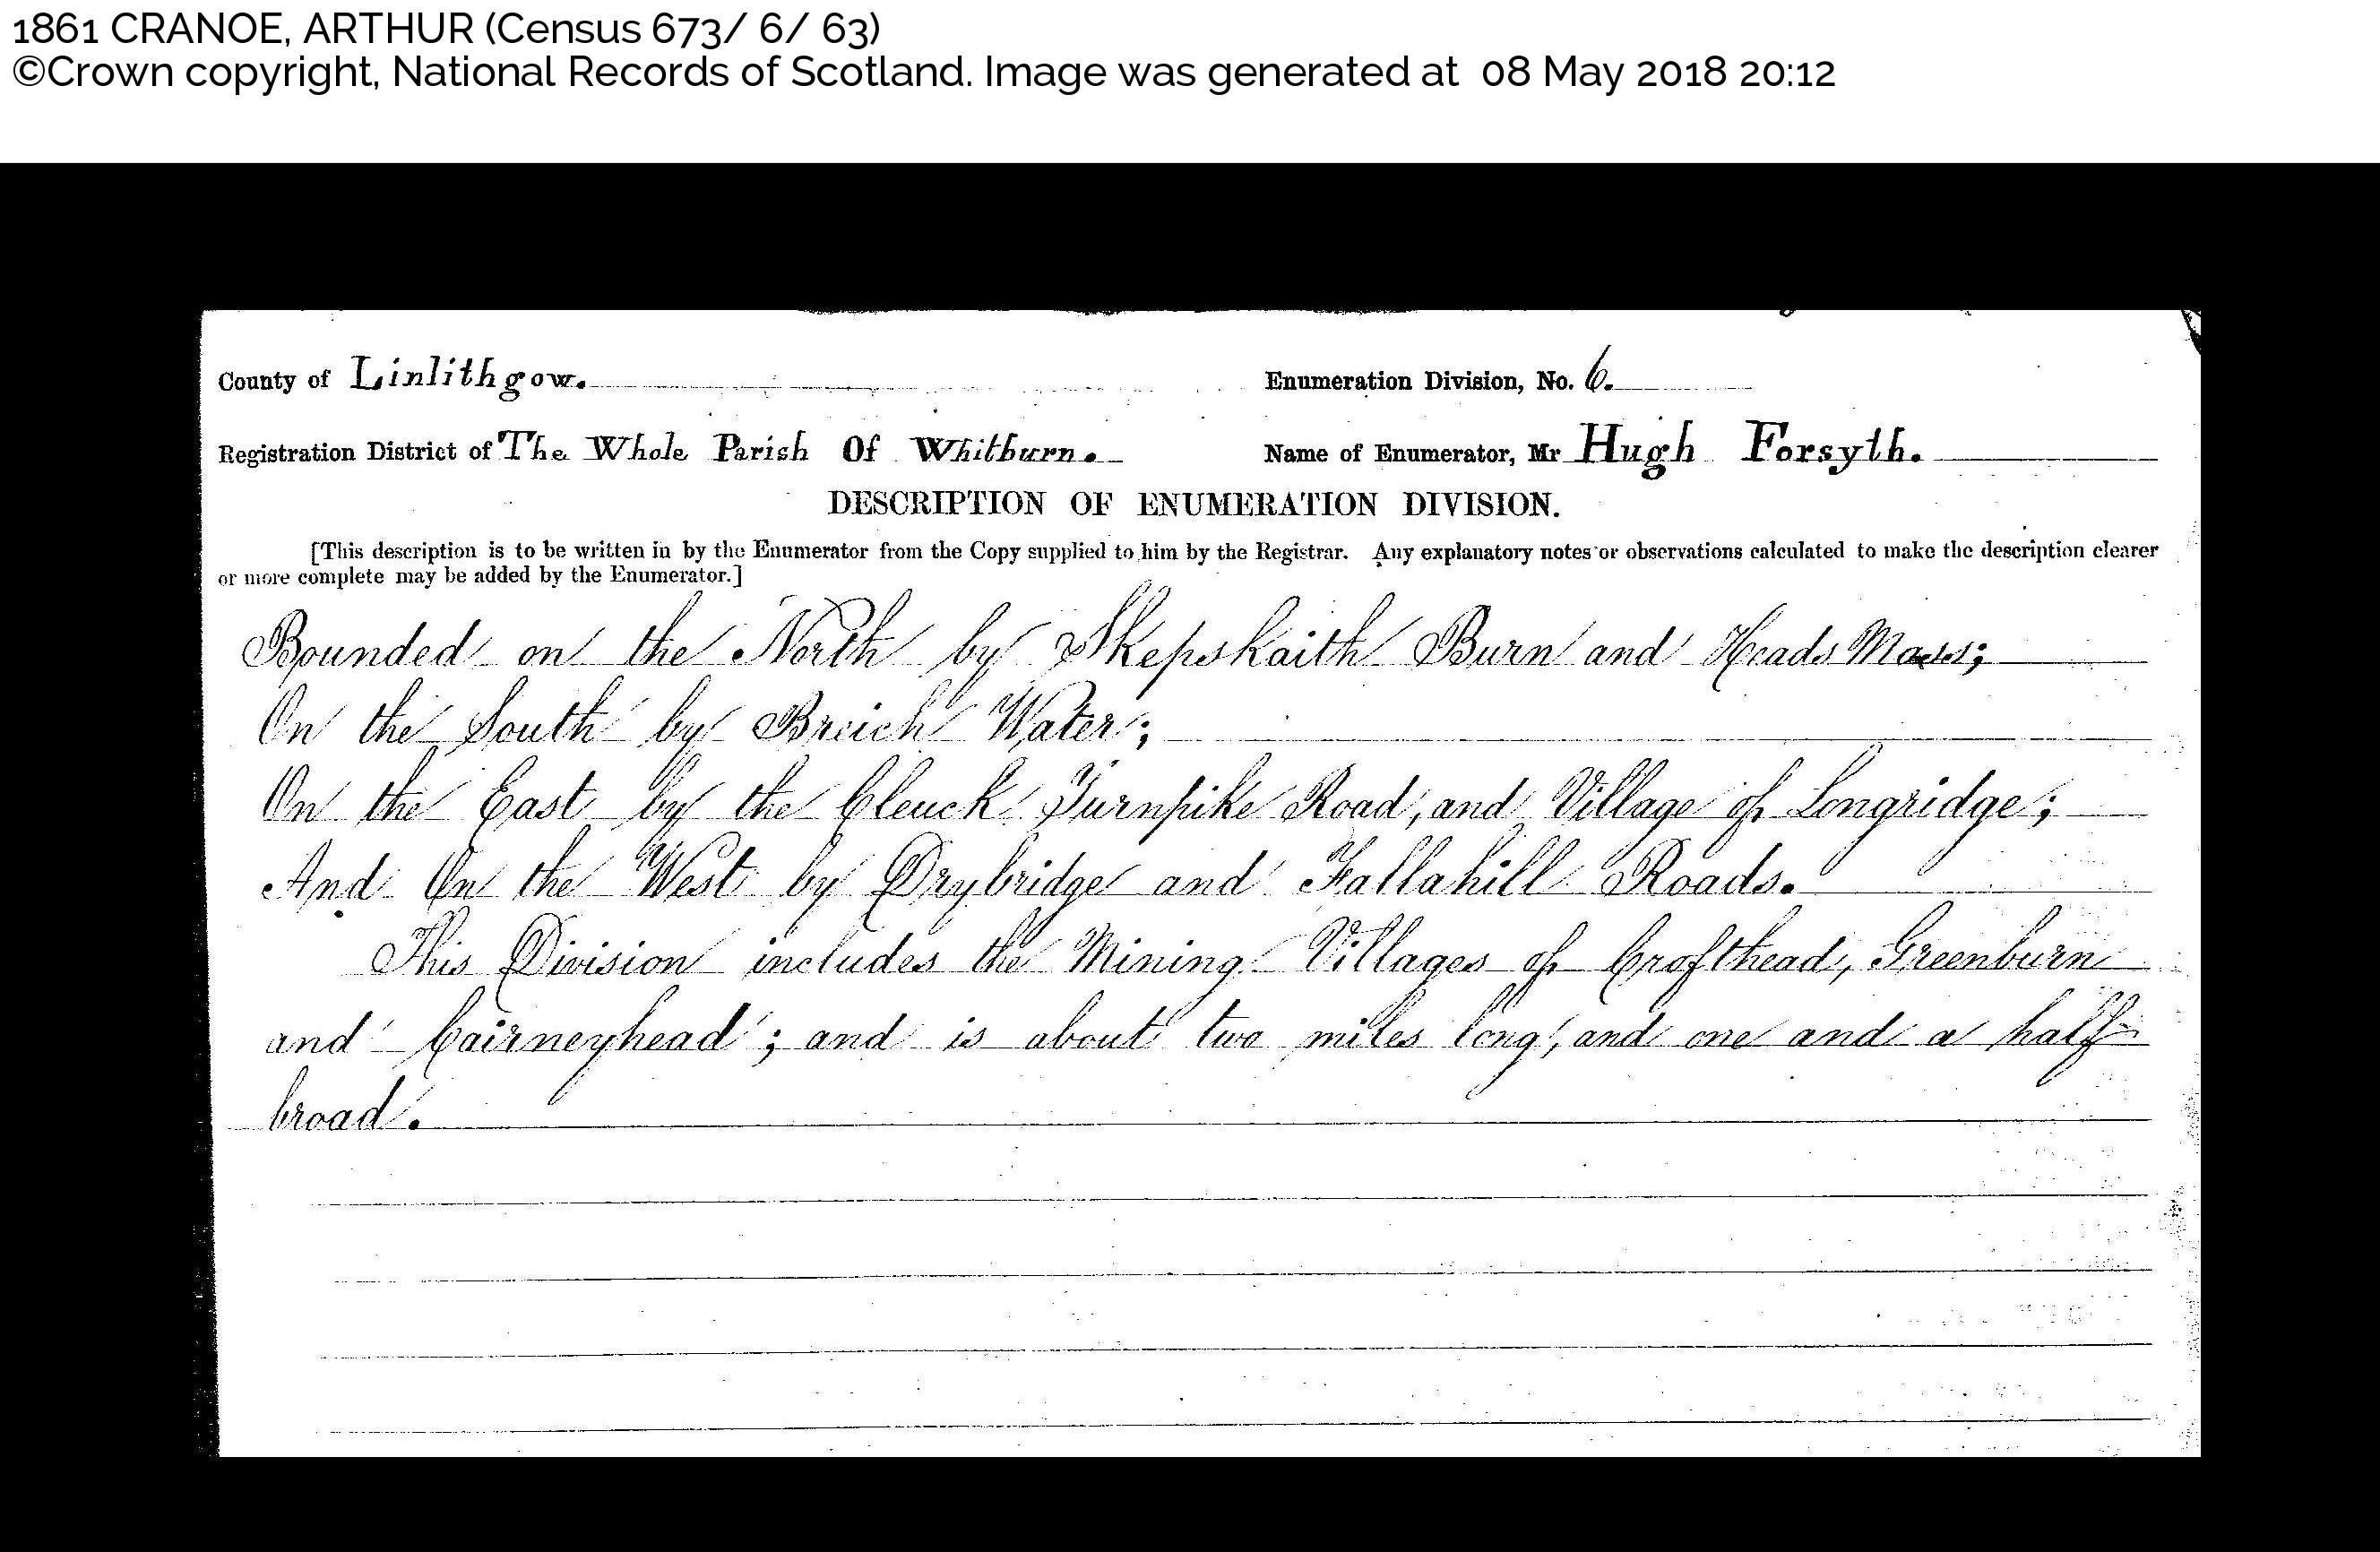 1861 CRANOE, ARTHUR (Census 673/ 6/ 63)
©Crown copyright, National Records of Scotland. Image was generated at 08 May 2018 20:12
County of Linlithgow.
Enumeration Division, No. 6.
Registration District of The Whole Parish Of Whitburn.
Name of Enumerator, Mr Hugh Forsyth.
DESCRIPTION OF ENUMERATION DIVISION.
[This description is to be written in by the Enumerator from the Copy supplied to him by the Registrar. Any explanatory notes or observations calculated to make the description clearer
or more complete may be added by the Enumerator.]
Bounded on the North by Skepskaith Burn and Heads Moss;
On the South by Breich Water;
On the East by the Cleuck Turnpike Road, and Village of Longridge;
And On the West by Drybridge and Fallahill Roads.
This Division includes the Mining Villages of Crofthead, Greenburn
and Cairneyhead; and is about two miles long, and one and a half
broad.